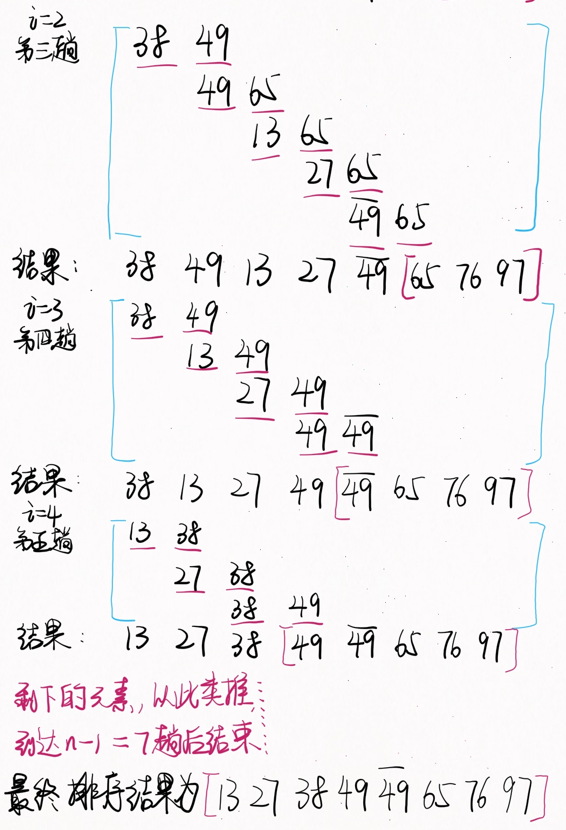 i=2
第三趟
38 49
49 65
13 65
27 65
4̅9̅ 65
结果: 38 49 13 27 4̅9̅ [65 76 97]
i=3
第四趟
38 49
13 49
27 49
49 4̅9̅
结果: 38 13 27 49 [4̅9̅ 65 76 97]
i=4
第五趟
13 38
27 38
38 49
结果: 13 27 38 [49 4̅9̅ 65 76 97]
剩下的元素,以此类推……
到达n-1=7趟后结束.
最终排序结果为[13 27 38 49 4̅9̅ 65 76 97]